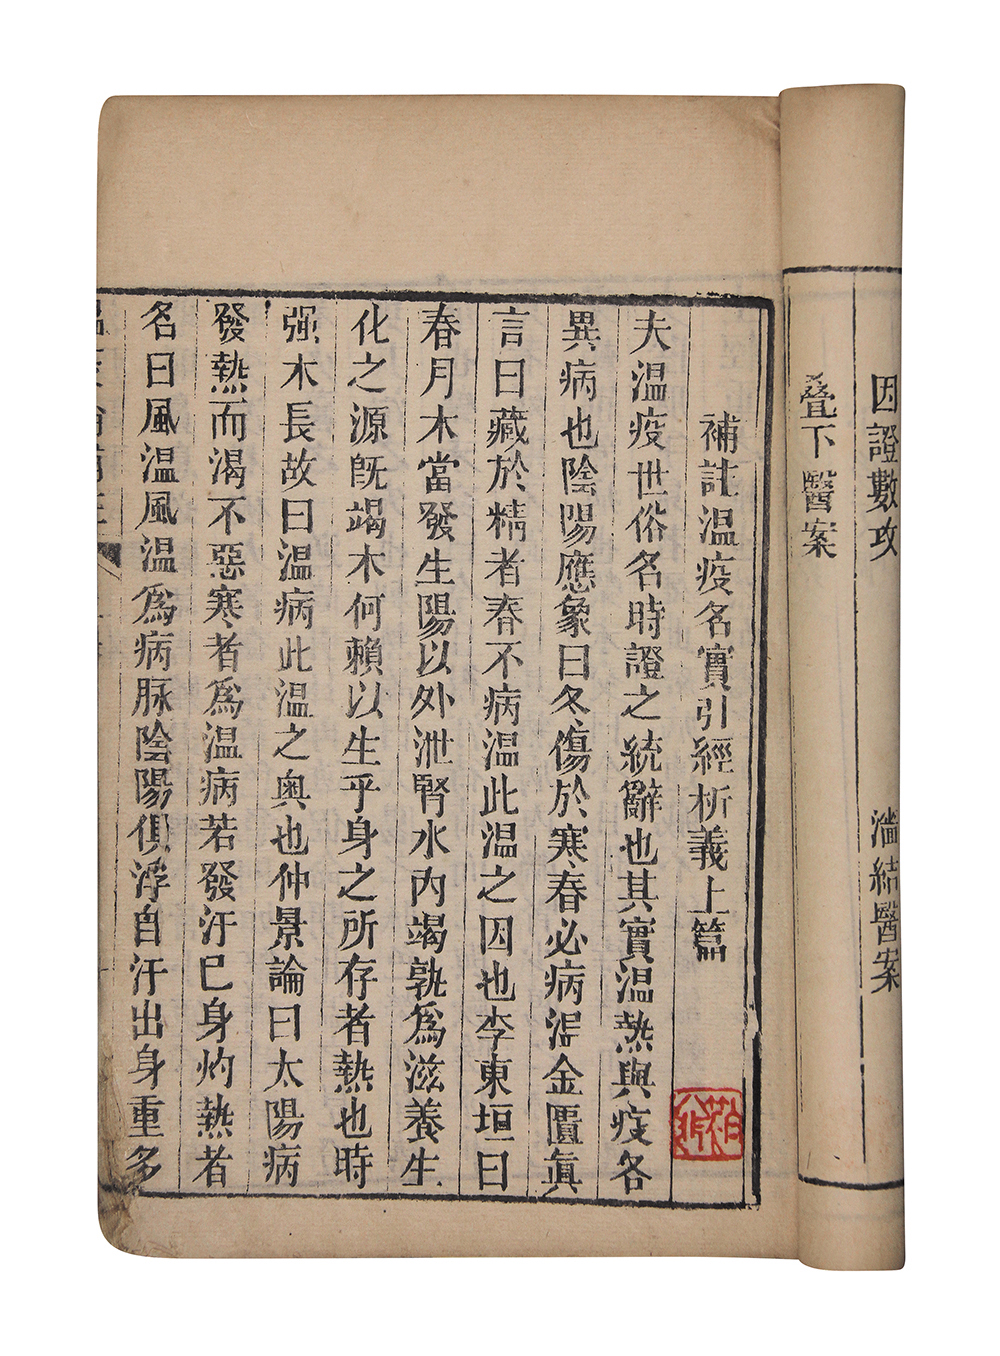 因證數攻　　滀結醫案
疊下醫案
補註温疫名實引經析義上篇
夫温疫世俗名時證之統辭也其實温熱與疫各
異病也陰陽應象曰冬傷於寒春必病温金匱眞
言曰藏於精者春不病温此温之因也李東垣曰
春月木當發生陽以外泄腎水內竭孰爲滋養生
化之源旣竭木何賴以生乎身之所存者熱也時
强木長故曰温病此温之奥也仲景論曰太陽病
發熱而渴不惡寒者爲温病若發汗巳身灼熱者
名曰風温風温爲病脉陰陽俱浮自汗出身重多